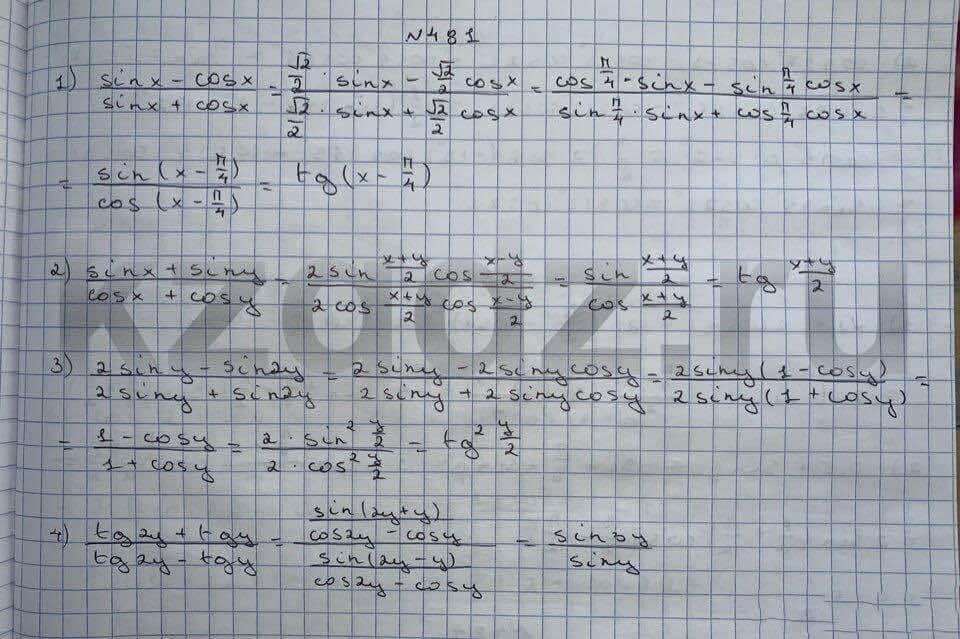 №481
1) \frac{sinx - cosx}{sinx + cosx} = \frac{\frac{√2}{2} · sinx - \frac{√2}{2} cosx}{\frac{√2}{2} · sinx + \frac{√2}{2} cosx} = \frac{cos \frac{π}{4} · sinx - sin \frac{π}{4} cosx}{sin \frac{π}{4} · sinx + cos \frac{π}{4} cosx} =
= \frac{sin (x - \frac{π}{4})}{cos (x - \frac{π}{4})} = tg (x - \frac{π}{4})
2) \frac{sinx + siny}{cosx + cosy} = \frac{2 sin \frac{x+y}{2} cos \frac{x-y}{2}}{2 cos \frac{x+y}{2} cos \frac{x-y}{2}} = \frac{sin \frac{x+y}{2}}{cos \frac{x+y}{2}} = tg \frac{x+y}{2}
kzgdz.ru
3) \frac{2siny - sin2y}{2siny + sin2y} = \frac{2siny - 2sinycosy}{2siny + 2sinycosy} = \frac{2siny(1 - cosy)}{2siny(1 + cosy)} =
= \frac{1 - cosy}{1 + cosy} = \frac{2 · sin² \frac{y}{2}}{2 · cos² \frac{y}{2}} = tg² \frac{y}{2}
4) \frac{tg2y + tgy}{tg2y - tgy} = \frac{\frac{sin(2y+y)}{cos2y - cosy}}{\frac{sin(2y-y)}{cos2y - cosy}} = \frac{sin3y}{siny}